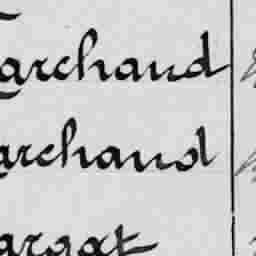 archand
archand
argat